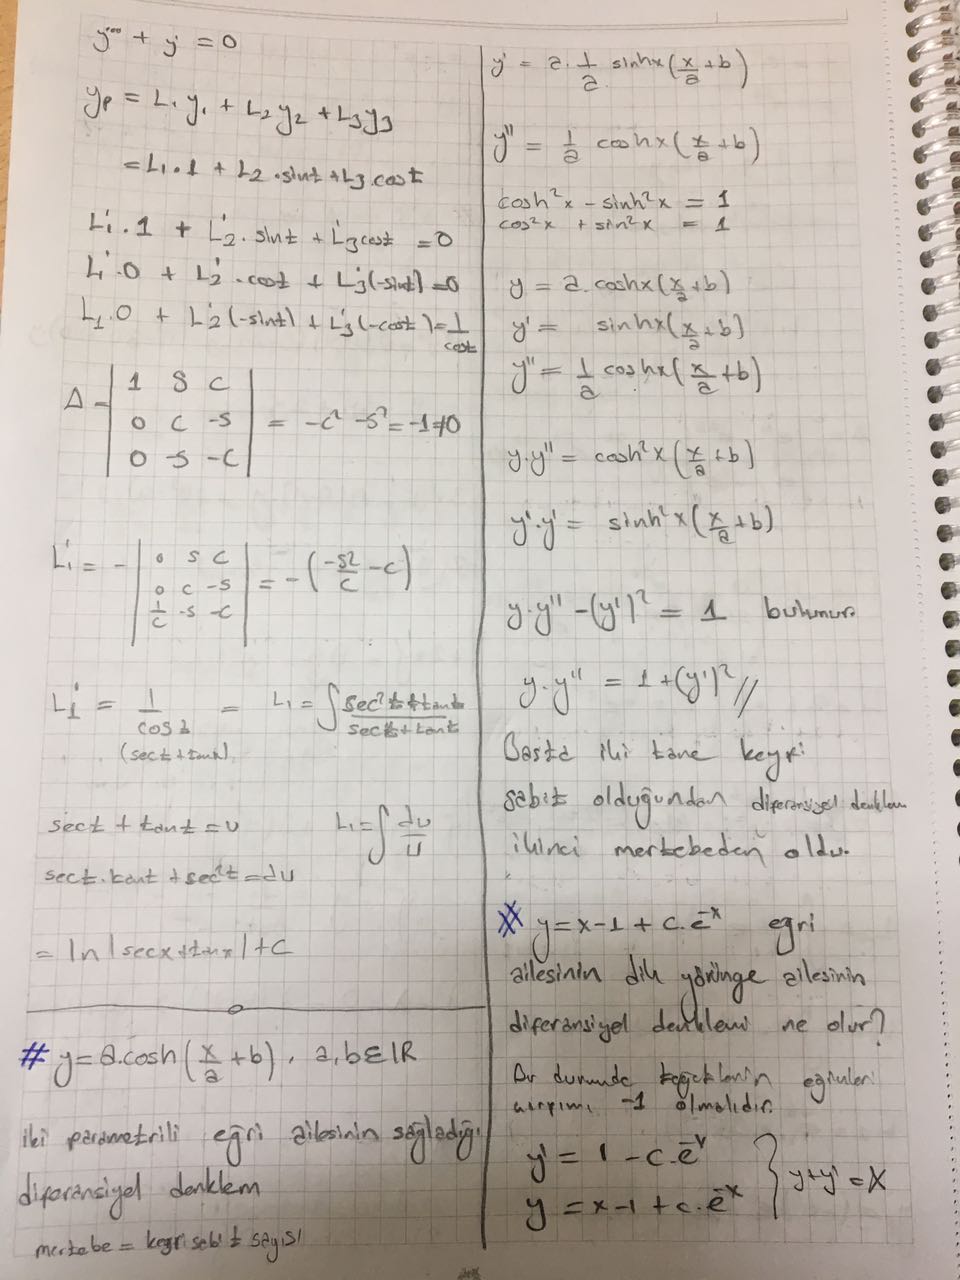 y''' + y' = 0
yp = L₁y₁ + L₂y₂ + L₃y₃
= L₁.1 + L₂.sint + L₃.cost
L₁'.1 + L₂'.sint + L₃'cost = 0
L₁'.0 + L₂'.cost + L₃'(-sint) = 0
L₁.0 + L₂'(-sint) + L₃'(-cost) = 1/cost
Δ = | 1 S C |
| 0 C -S | = -C² - S² = -1 ≠ 0
| 0 -S -C |
L₁' = - | 0 S C |
| 0 C -S | = - (-S²/C - C)
| 1/C -S -C |
L₁' = 1/cost = L₁ = ∫ sec²t + tant / sect + tant
(sect + tant)
sect + tant = u L₁ = ∫ du/u
sect.tant + sec²t = du
= ln|secx + tanx| + C
# y = a.cosh(x/a + b), a,b ∈ IR
iki parametrili eğri ailesinin sağladığı
diferansiyel denklem
mertebe = keyfi sabit sayısı
y' = a. 1/a sinhx(x/a + b)
y'' = 1/a coshx(x/a + b)
cosh²x - sinh²x = 1
cos²x + sin²x = 1
y = a.coshx(x/a + b)
y' = sinhx(x/a + b)
y'' = 1/a coshx(x/a + b)
y.y'' = cosh²x(x/a + b)
y'.y' = sinh²x(x/a + b)
y.y'' - (y')² = 1 bulunur.
y.y'' = 1 + (y')² //
Başta iki tane keyfi
sabit olduğundan diferansiyel denklem
ikinci mertebeden oldu.
# y = x-1 + c.e^-x eğri
ailesinin dik yörünge ailesinin
diferansiyel denklemi ne olur?
Bu durumda teğetlerinin eğimleri
çarpımı -1 olmalıdır.
y' = 1 - c.e^-x
y = x-1 + c.e^-x } y+y' = x